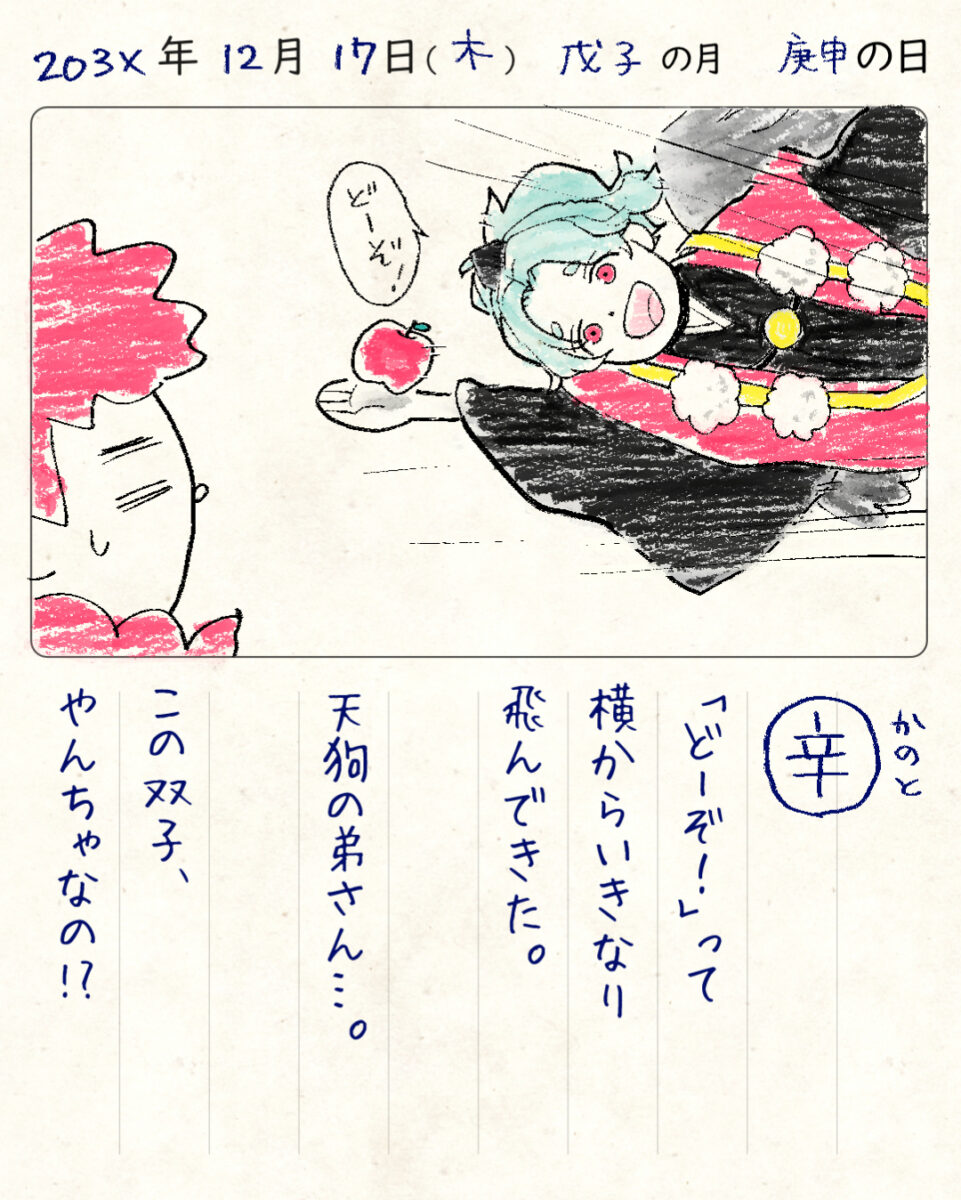 203X年 12月 17日(木) 戊子の月 庚申の日
どーぞ!
かのと
辛
「どーぞ!」って
横からいきなり
飛んできた。
天狗の弟さん…。
この双子、
やんちゃなの!?